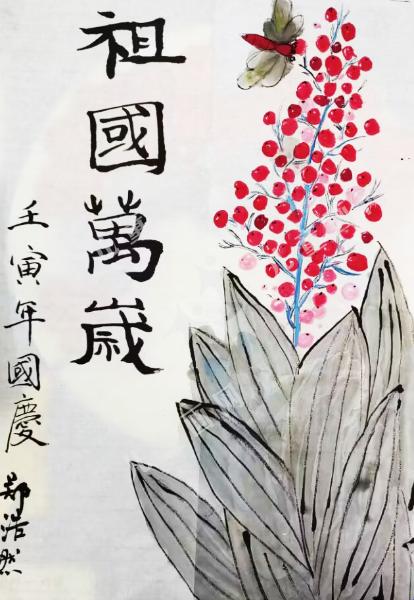 祖國萬歲
壬寅年國慶
郑浩然